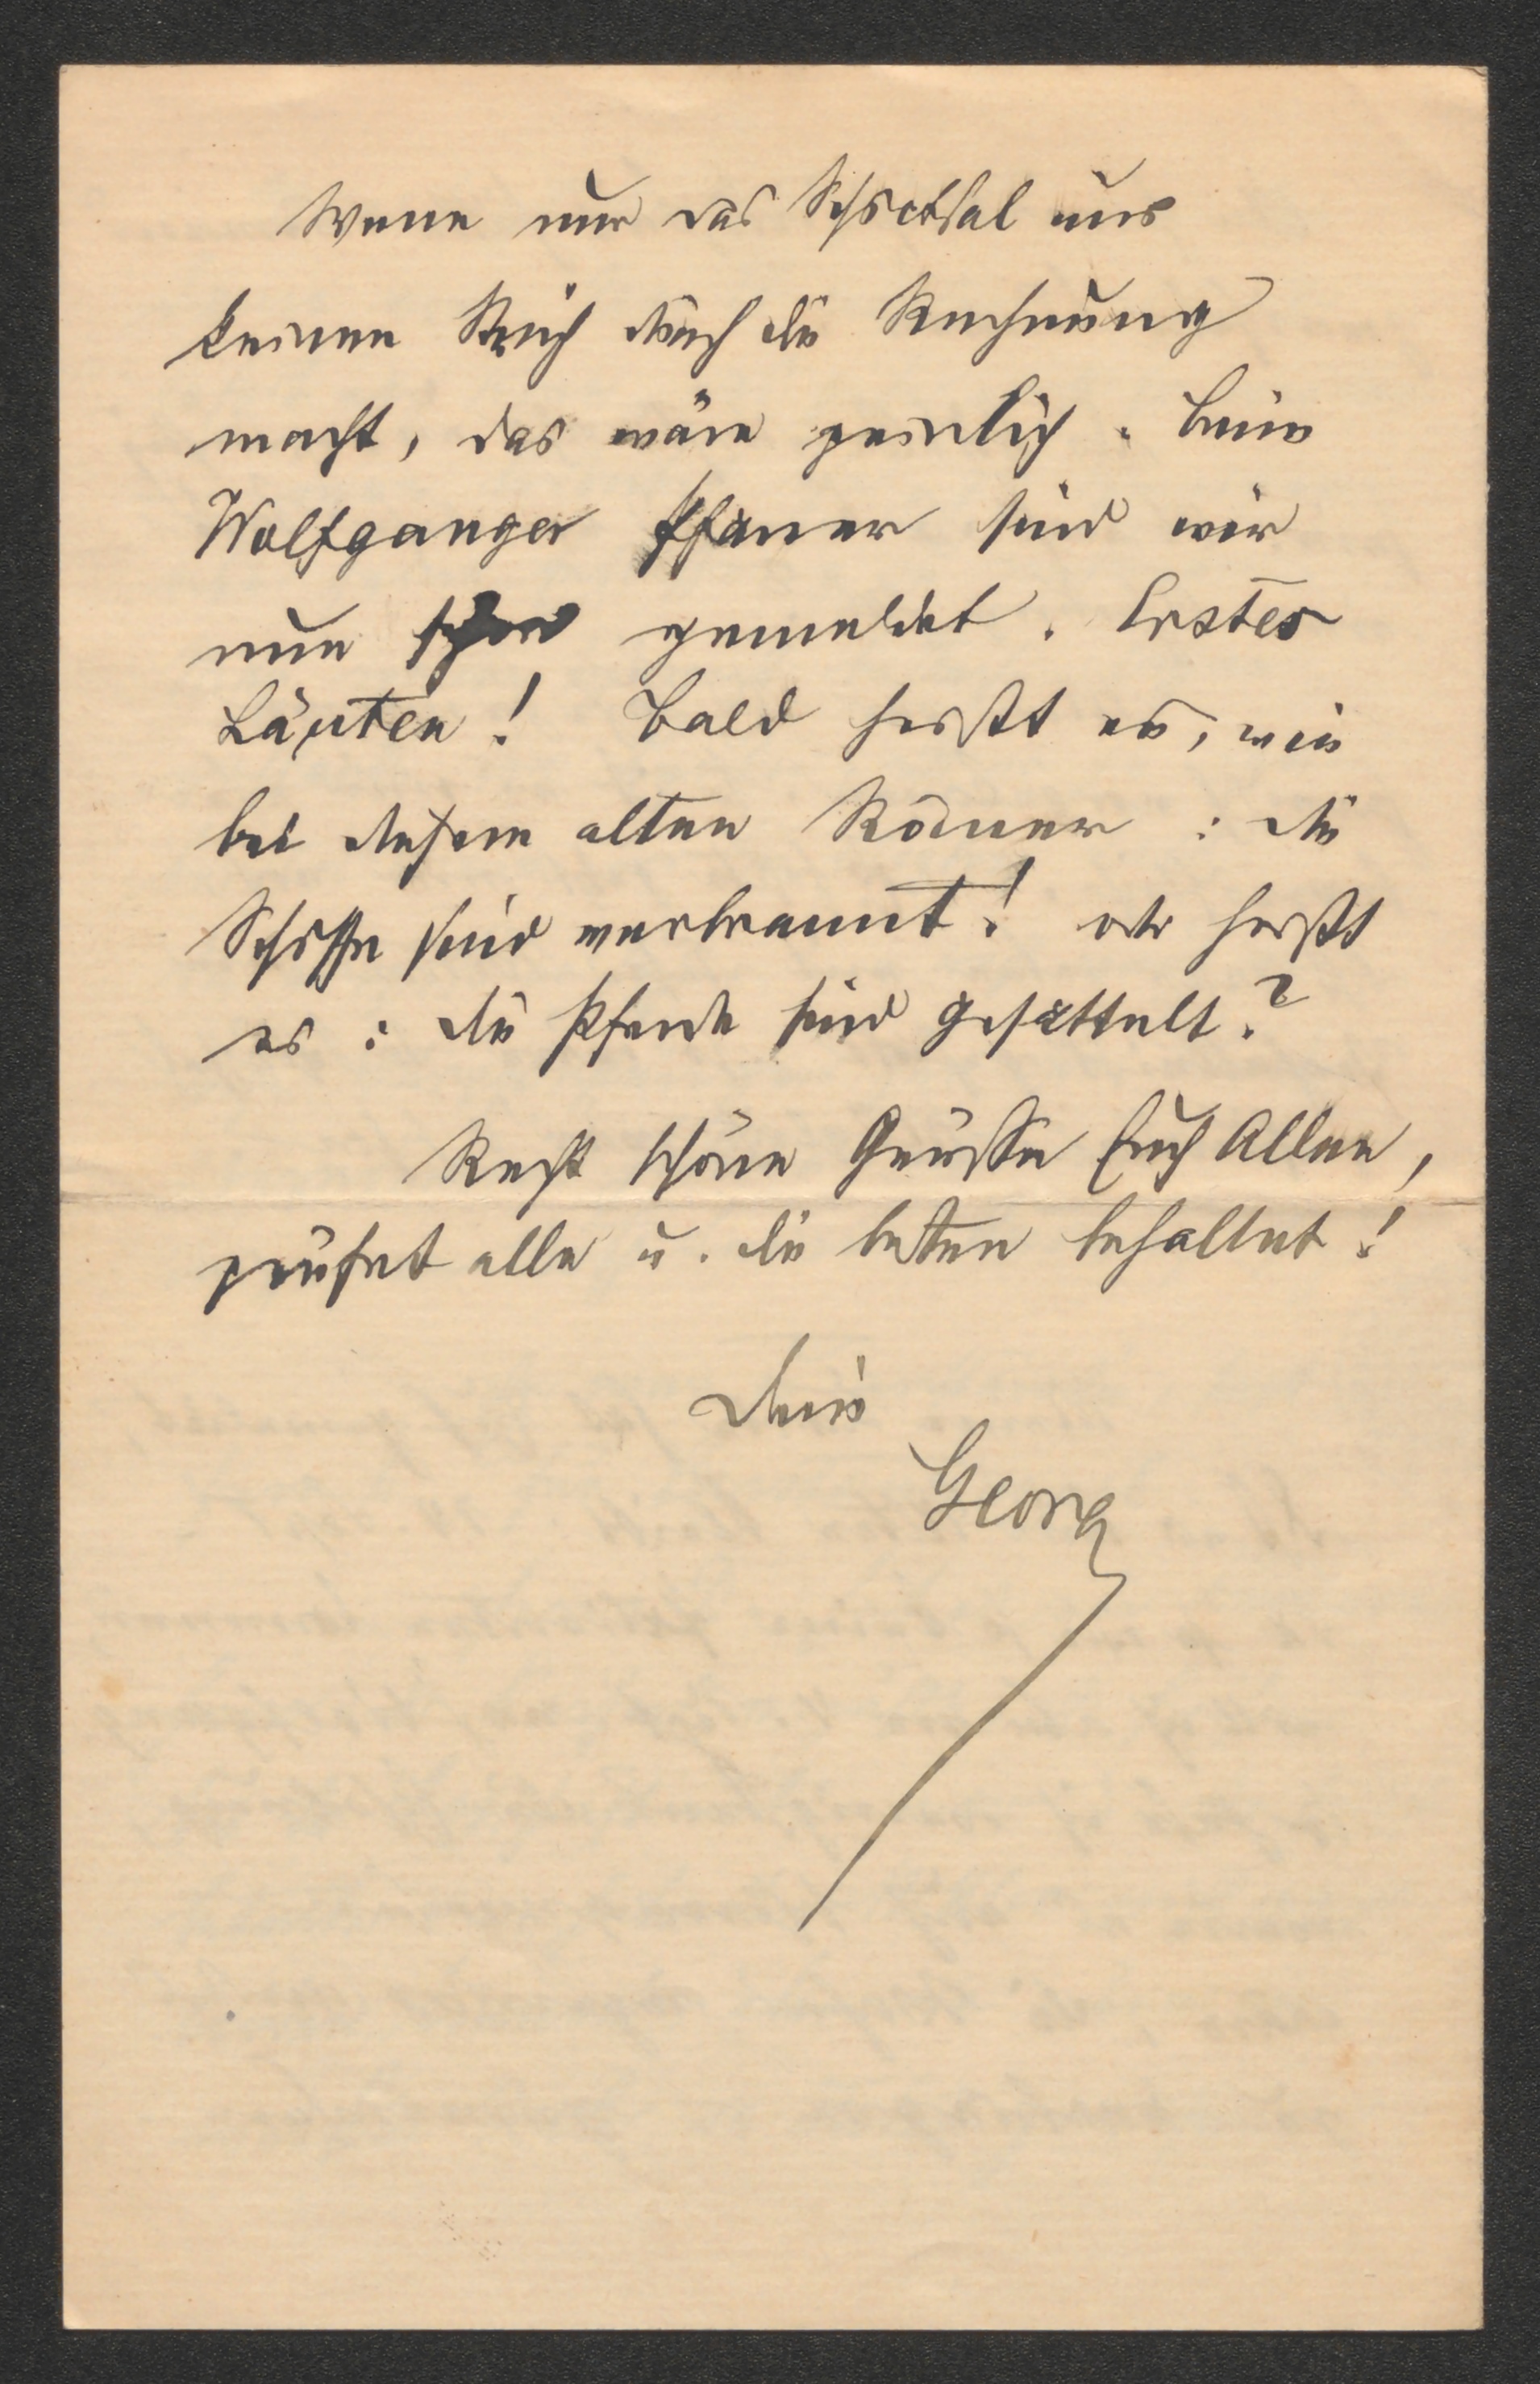 Wenn nur das Schicksal uns
keinen Strich durch die Rechnung
macht, das wäre peinlich. Beim
Wolfganger Pfarrer sind wir
nun schon gemeldet. Erstes
Läuten! Bald heißt es, wie
bei diesem alten Römer: die
Schiffe sind verbrannt! oder heißt
es: die Pferde sind gesattelt?
Recht schöne Grüsse Euch Allen,
prüfet alle u. die besten behaltet!
Dein
Georg